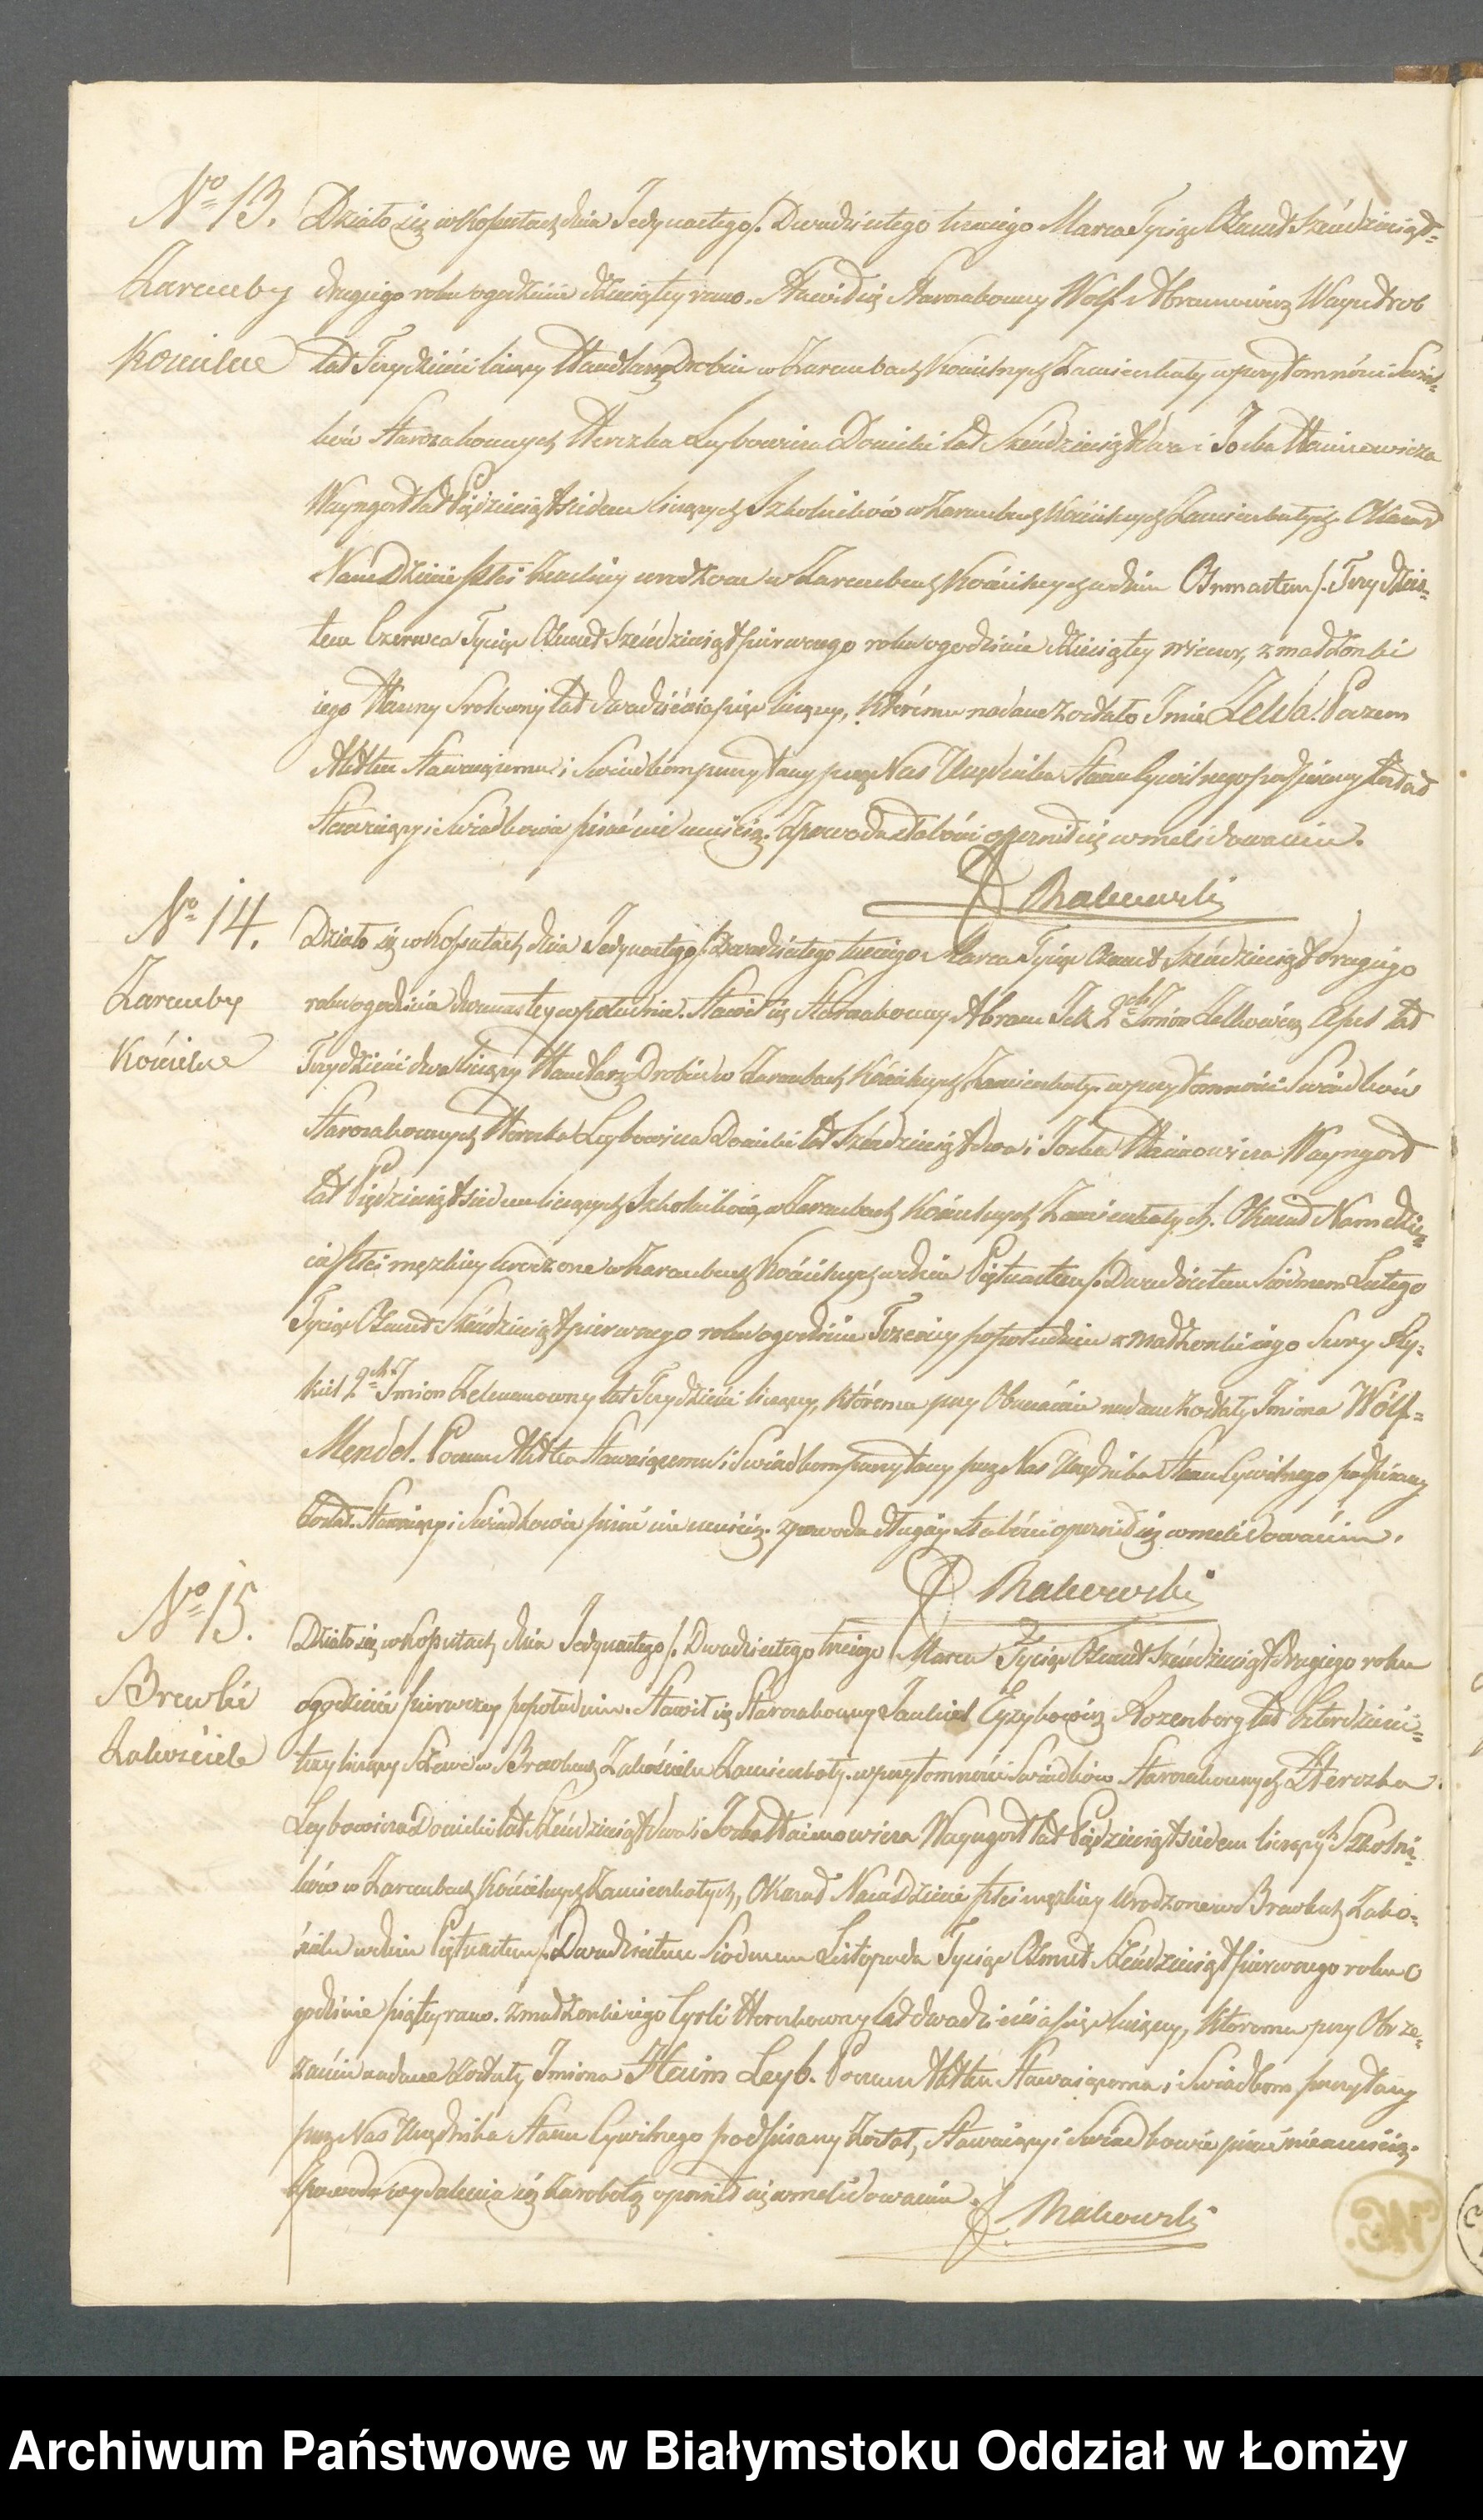 No 13.
Zaremby
Kościelne
Działo się w Kossutach dnia Jedynastego/: Dwudziestego trzeciego Marca Tysiąc Ośmset Sześdziesiąt=
drugiego roku o godzinie dziesiątey rano. Stawił się Starozakonny Wolf Abramowicz
lat Trzydzieści liczący Handlarz Drobiu w Zarembach Kościelnych Zamieszkały w przytomności Świad=
ków Starozakonnych Herszka Leybowicza Domicki lat Sześdziesiąt dwa i Joska Haimowicza
Wayngort lat Piędziesiąt siedem liczących Szkolników w Zarembach Kościelnych Zamieszkałych. Okazał
Nam Dziecie płci żeńskiey urodzone w Zarembach Kościelnych w dniu Ośmnastem/: Trzydzies=
tem Czerwca Tysiąc Ośmset Sześdziesiąt pierwszego roku o godzinie dziesiątey wieczor, z małżonki
iego Hanny Srolowny lat dwadzieścia pięć liczącey, któremu nadane zostało Imie Zelda. Poczem
Akt ten Stawaiącemu i Świadkom przeczytany przez Nas Urzędnika Stanu Cywilnego podpisany został
Stawaiący i Świadkowie pisać nie umieią. Z powodu słabości opoźnił się w meldowaniu.
Makowski
No 14.
Zaremby
Kościelne
Działo się w Kossutach dnia Jedynastego/: Dwudziestego trzeciego Marca Tysiąc Ośmset Sześdziesiąt drugiego
roku o godzinie dwunastey w południe. Stawił się Starozakonny Abram Ick 2ch Imion Zelkowicz lat
Trzydzieści dwa liczący Handlarz Drobiu w Zarembach Kościelnych Zamieszkały w przytomności Świadków
Starozakonnych Herszka Leybowicza Domicki lat Sześdziesiąt dwa i Joska Haimowicza Wayngort
lat Piędziesiąt siedem liczących Szkolników, w Zarembach Kościelnych Zamieszkałych. Okazał Nam dzie=
cie płci męzkiey urodzone w Zarembach Kościelnych w dniu Piętnastem/: Dwudziestem Siódmem Lutego
Tysiąc Ośmset Sześdziesiąt pierwszego roku o godzinie Trzeciey po południu z małżonki iego Sury
2ch Imion Zelmanowny lat Trzydzieści liczącey, któremu przy Obrzezaniu nadane zostały Imiona Wólf=
Mendel. Poczem Akt ten Stawaiącemu i Świadkom przeczytany przez Nas Urzędnika Stanu Cywilnego podpisany
został. Stawaiący i Świadkowie pisać nie umieią. z powodu długiey słabości opoźnił się w meldowaniu.
Makowski
No 15.
Brewki
Zakościele
Działo się w Kossutach dnia Jedynastego/: Dwudziestego trzeciego Marca Tysiąc Ośmset Sześdziesiąt Drugiego roku
o godzinie pierwszey po południu. Stawił się Starozakonny Jankiel Rozenberg lat Czterdzieści=
trzy liczący Szewc w Brewkach Zakościelu Zamieszkały. w przytomności Świadków Starozakonnych Herszka
Leybowicza Domicki lat Sześdziesiąt dwa i Joska Haimowicza Wayngort lat Piędziesiąt siedem liczących Szkolni=
ków w Zarembach Kościelnych Zamieszkałych, Okazał Nam Dziecie płci męzkiey urodzone w Brewkach Zako=
ścielu w dniu Piętnastem/: Dwudziestem Siódmem Listopada Tysiąc Ośmset Sześdziesiąt pierwszego roku o
godzinie piątey rano. z małżonki iego Cyrli Herszkowny lat dwadzieścia pięć liczącey, któremu przy Obrze=
zaniu nadane zostały Imiona Haim Leyb. Poczem Akt ten Stawaiącemu i Świadkom przeczytany
przez Nas Urzędnika Stanu Cywilnego podpisany został, Stawaiący i Świadkowie pisać nie umieią.
Z powodu wydalenia się za robotą opoźnił się w meldowaniu.
Makowski
Archiwum Państwowe w Białymstoku Oddział w Łomży